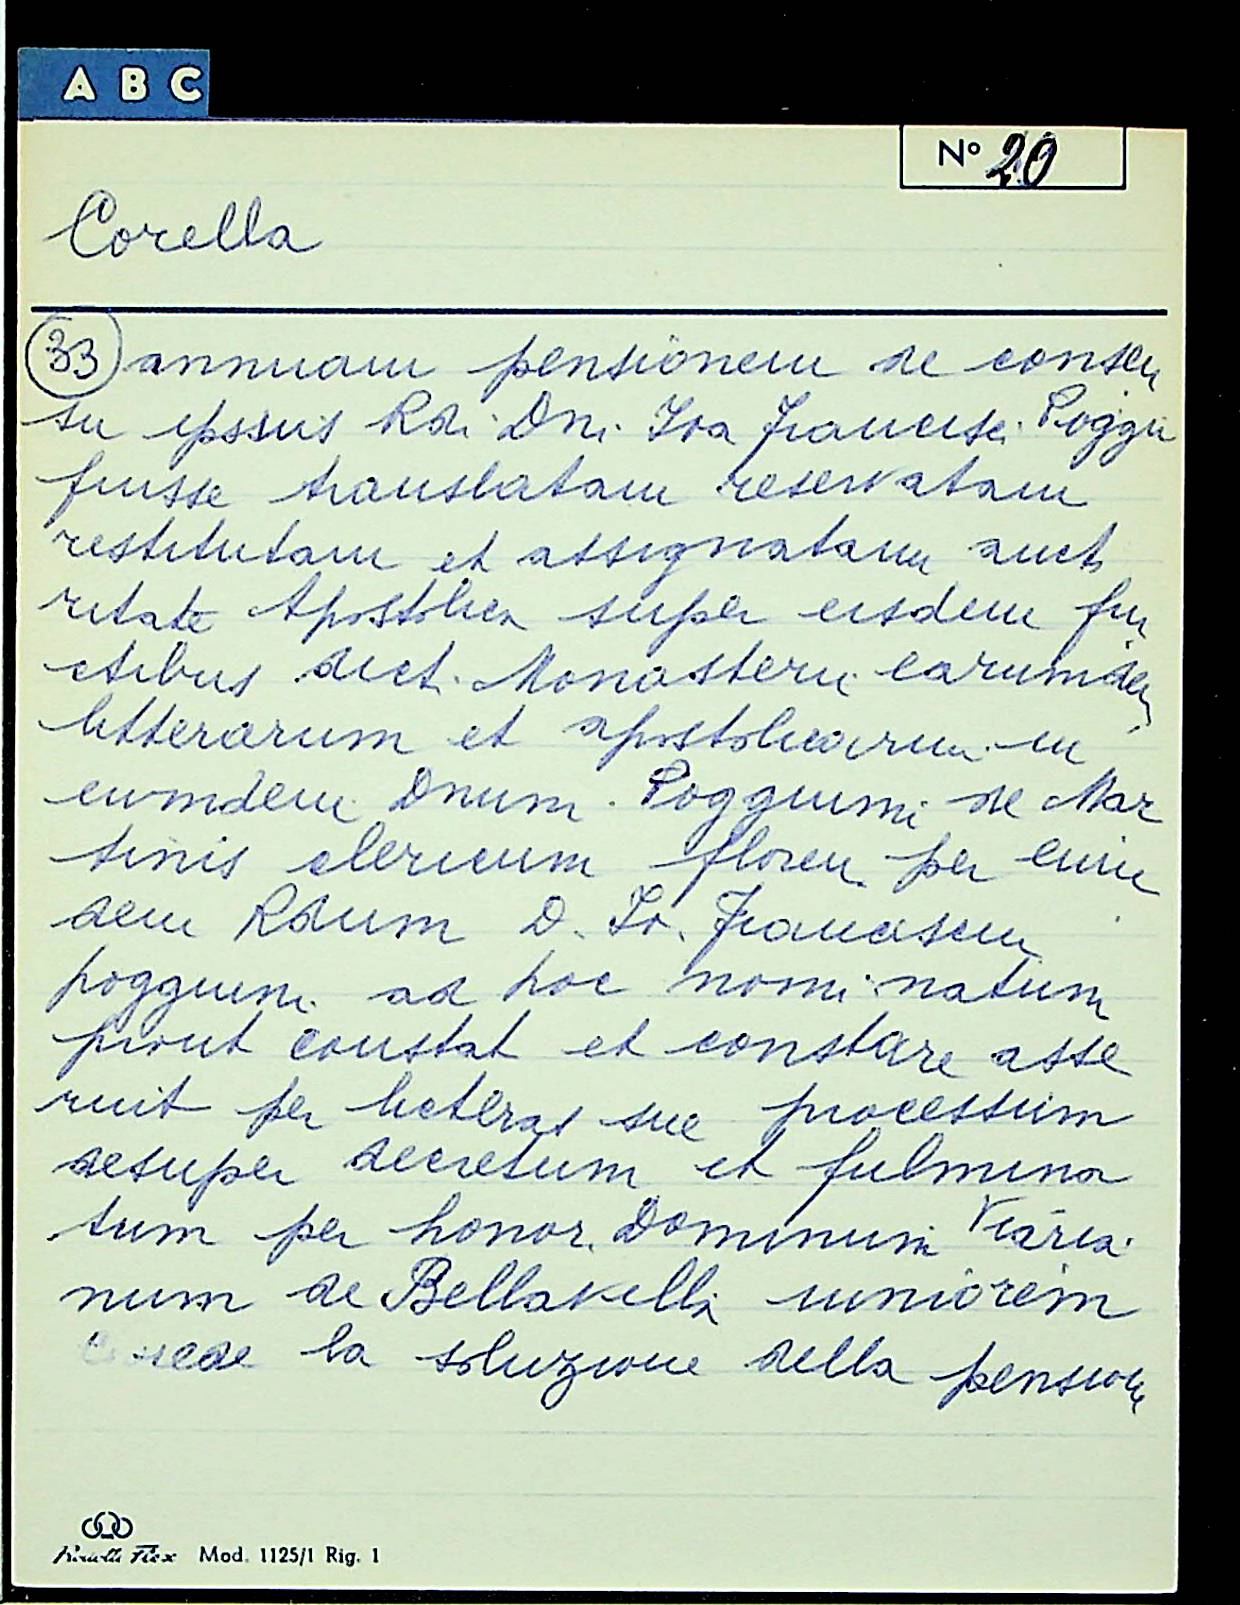 A B C
Nº 20
Corella
33 annuam pensionem de consen
su ipsius Rdi Dni. Ioa Francisci Poggii
fuisse translatam reservatam
restitutam et assignatam aucto
ritate Apostolica super eisdem fru
ctibus dict. Monasterii earumdem
litterarum et apostolicarum in
eumdem Dnum. Poggium de Mar
tinis clericum floren per eum
dem Rdum D. Io. Franciscum
poggium ad hoc nominatum
prout constat et constare asse
ruit per licteras sue processum
desuper decretum et fulmina
tum per honor. Dominum
num de Bellavilli iuniorem
la soluzione della pensione
Flex Mod. 1125/1 Rig. 1